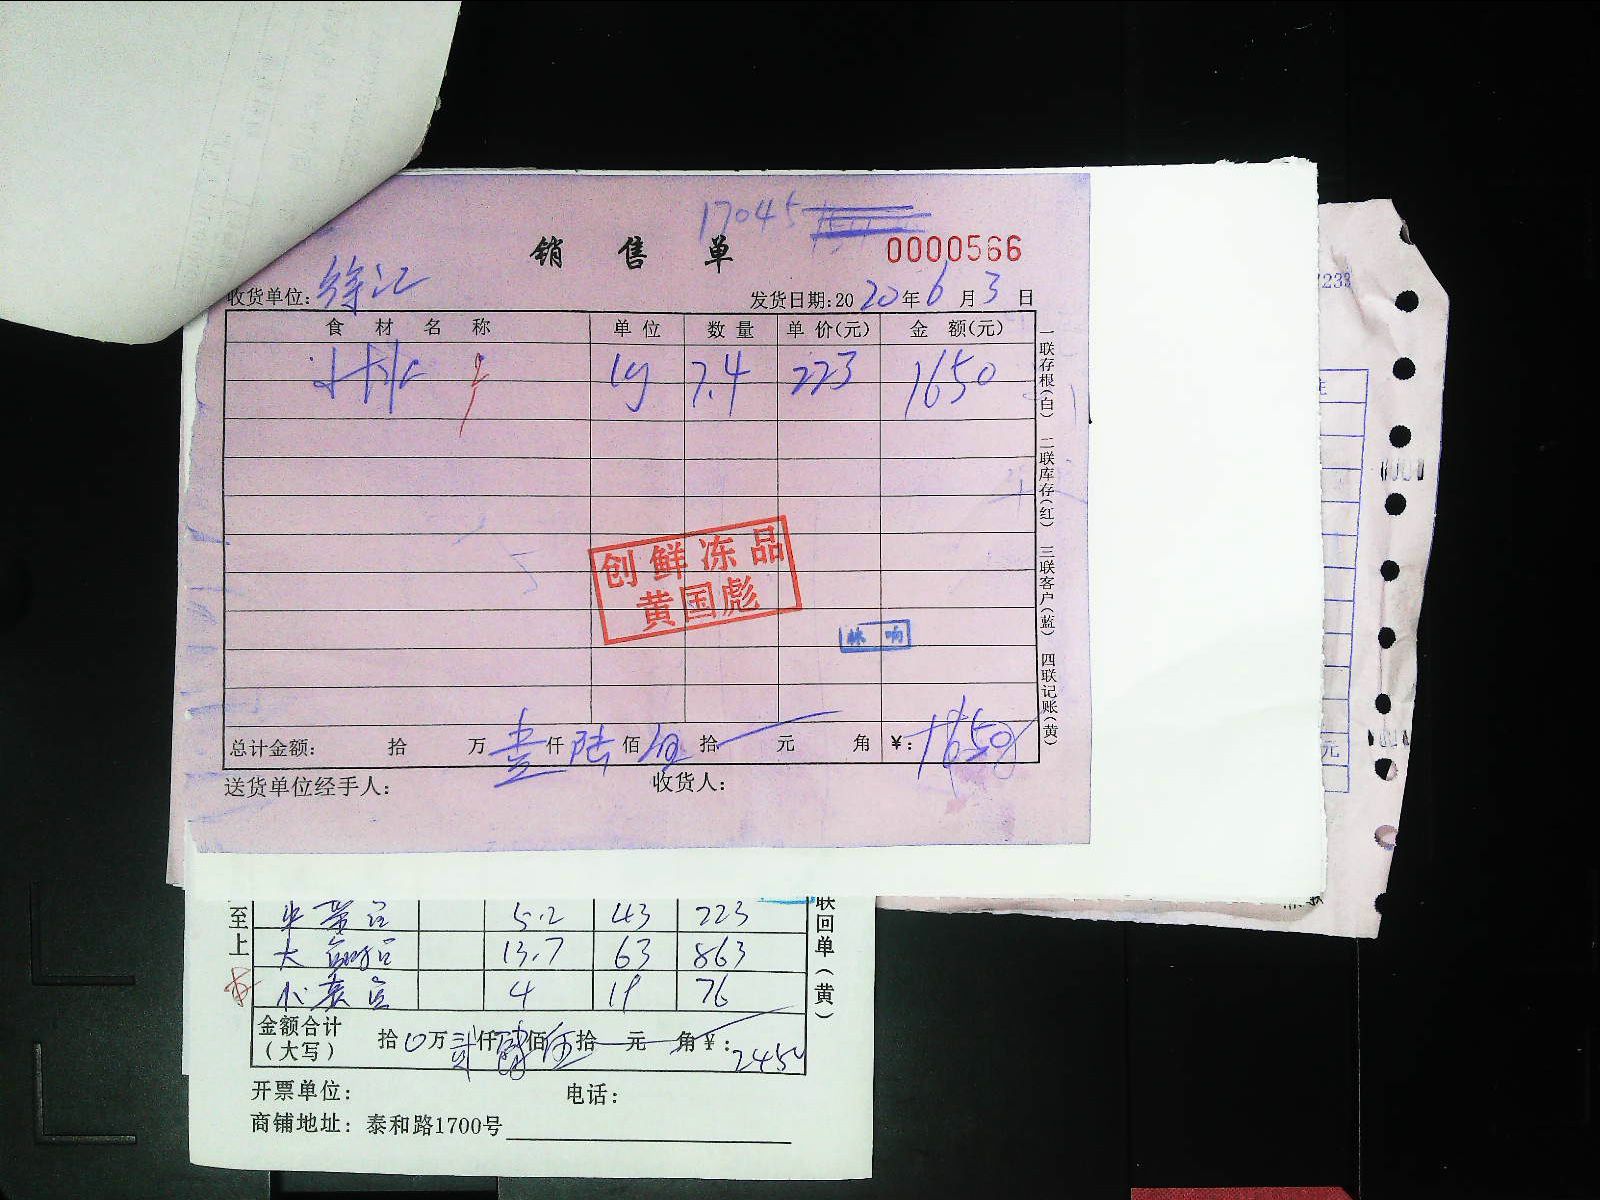 17045
销售单 0000566
收货单位: 徐汇 发货日期:2020年6月3日
食材名称 单位 数量 单价(元) 金额(元)
小排 kg 7.4 223 1650
一联存根(白) 二联库存(红) 三联客户(蓝) 四联记账(黄)
创鲜冻品
黄国彪
总计金额: 拾 万 壹 仟 陆 佰 伍 拾 元 角 ¥: 1650
送货单位经手人: 收货人:
5.2 43 223
大 13.7 63 863
小 4 19 76
至上
联回单(黄)
金额合计(大写) 拾 0 万 贰 仟 肆 佰 伍 拾 元 角 ¥: 2450
开票单位: 电话:
商铺地址: 泰和路1700号
7233
元